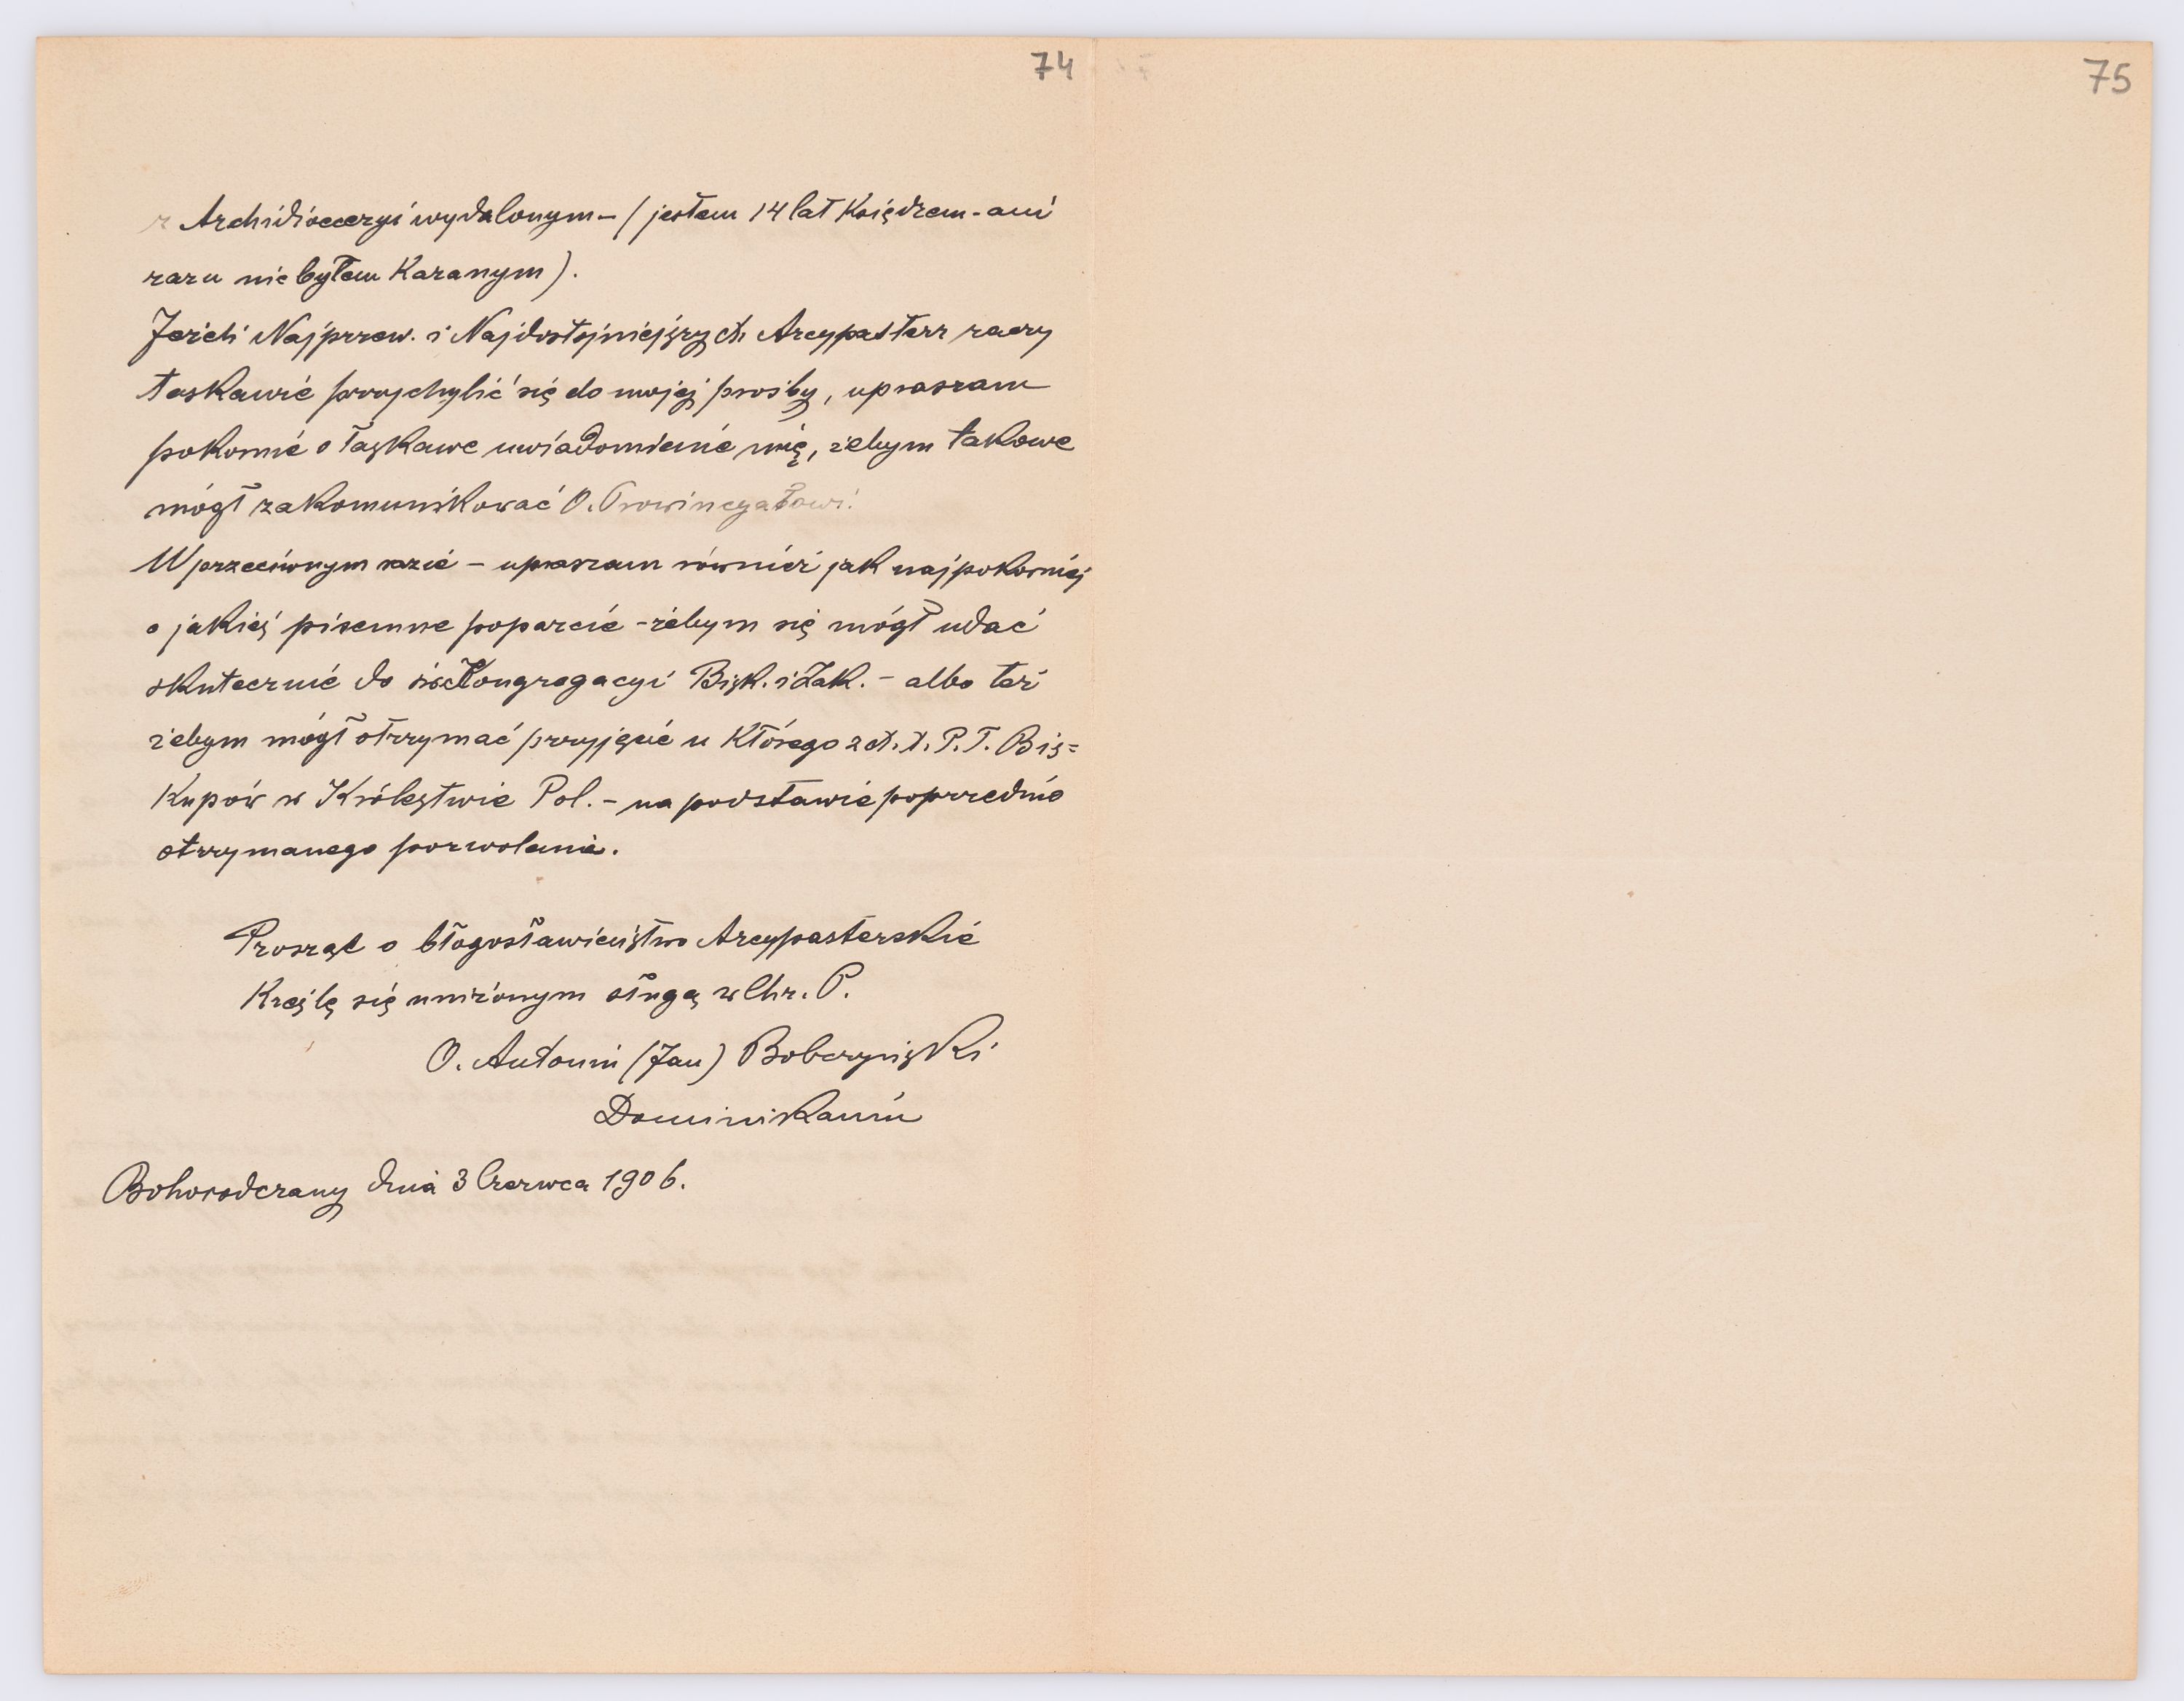 74
75
z Archidiecezyi wydalonym – (jestem 14 lat Księdzem - ani
razu nie byłem Karanym).
Jeżeli Najprzew. i Najdostojniejszy ch Arcypasterz raczy
łaskawie przychylić się do mojej prośby, upraszam
pokornie o łaskawe uwiadomienie mię, żebym takowe
mógł zakomunikować O. Prowincyałowi.
W przeciwnym razie – upraszam również jak najpokorniej
o jakieś pisemne poparcie – żebym się mógł udać
skutecznie do Kongregacyi Bisk. i Zak. – albo też
żebym mógł otrzymać przyjęcie u Którego z X. X. P. T. Bis=
Kupów w Królestwie Pol. – na podstawie poprzednio
otrzymanego pozwolenia.
Prosząc o błogosławieństwo Arcypasterskie
Kreślę się uniżonym sługą w Chr. P.
O. Antonin (Jan) Bobczyński
Dominikanin
Bohorodczany dnia 3 Czerwca 1906.